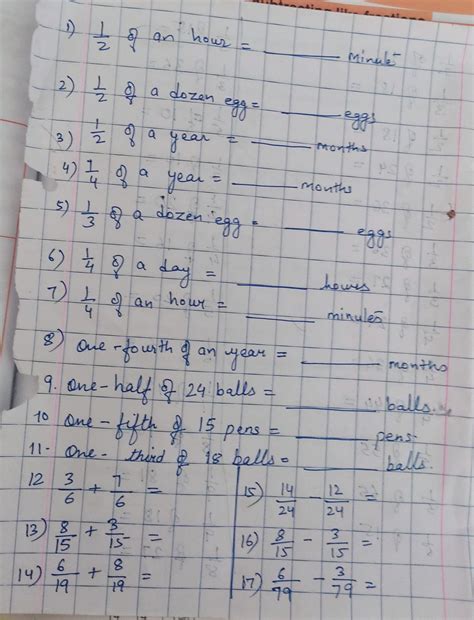 Subtraction like fractions
1) 1/2 of an hour = ______ minutes
2) 1/2 of a dozen egg = ______ eggs
3) 1/2 of a year = ______ months
4) 1/4 of a year = ______ months
5) 1/3 of a dozen egg = ______ eggs
6) 1/4 of a day = ______ hours
7) 1/4 of an hour = ______ minutes
8) One-fourth of an year = ______ months
9. One-half of 24 balls = ______ balls.
10 One-fifth of 15 pens = ______ pens.
11. One-third of 18 balls = ______ balls.
12 3/6 + 7/6 =
13) 8/15 + 3/15 =
14) 6/19 + 8/19 =
15) 14/24 - 12/24 =
16) 8/15 - 3/15 =
17) 6/79 - 3/79 =